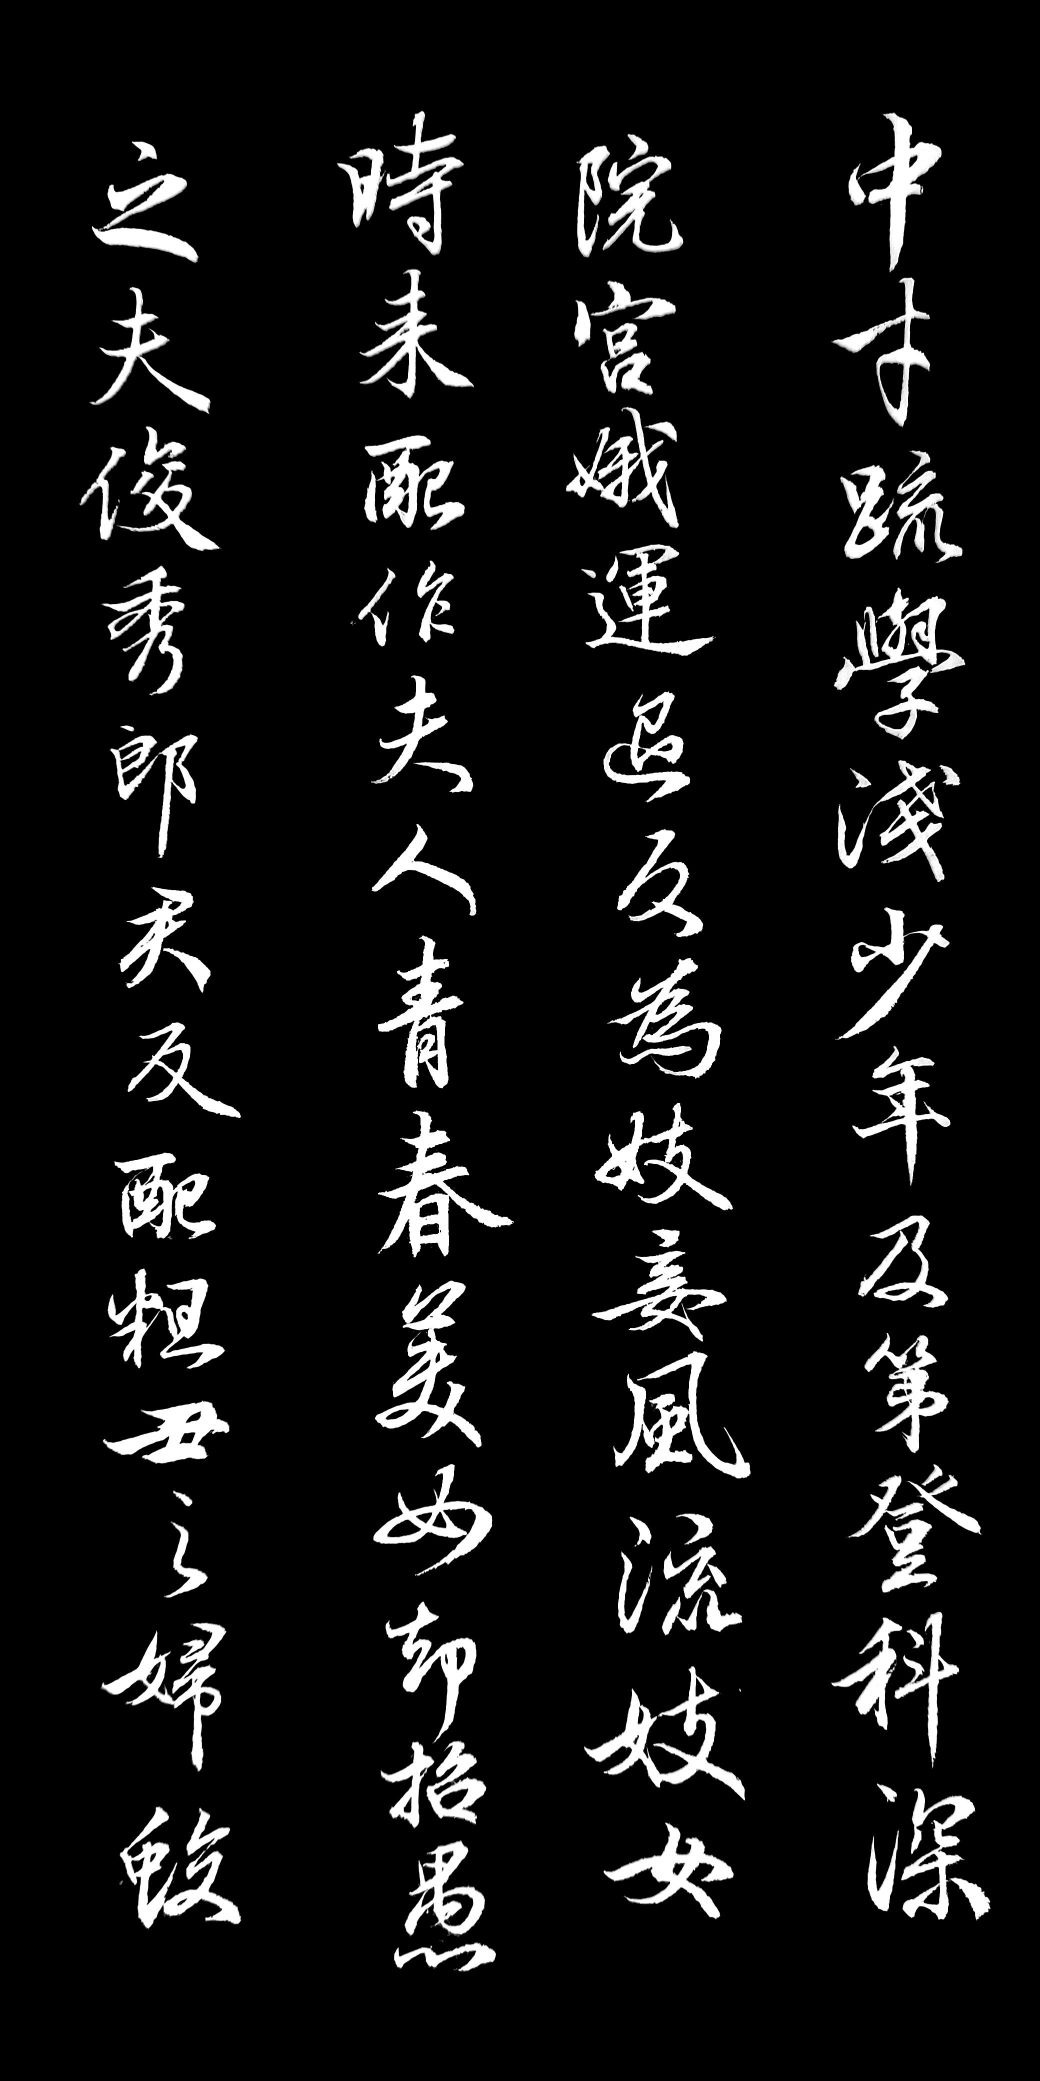 中才疏學淺少年及第登科深
院宮娥運退反為妓妾風流妓女
時来配作夫人青春美女却招愚
之夫俊秀郎君反配粗丑之婦蛟